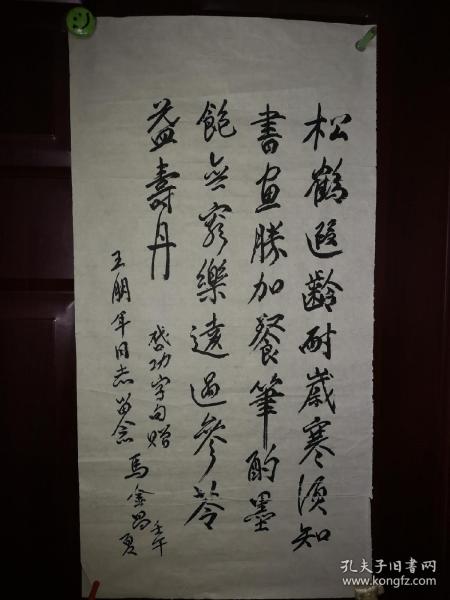 松鶴遐齡耐歲寒須知
書畫勝加餐筆酣墨
飽無窮樂遠過參苓
益壽丹
啓功字句贈
王朋年同志留念 馬金昌 壬午夏
孔夫子旧书网
www.kongfz.com